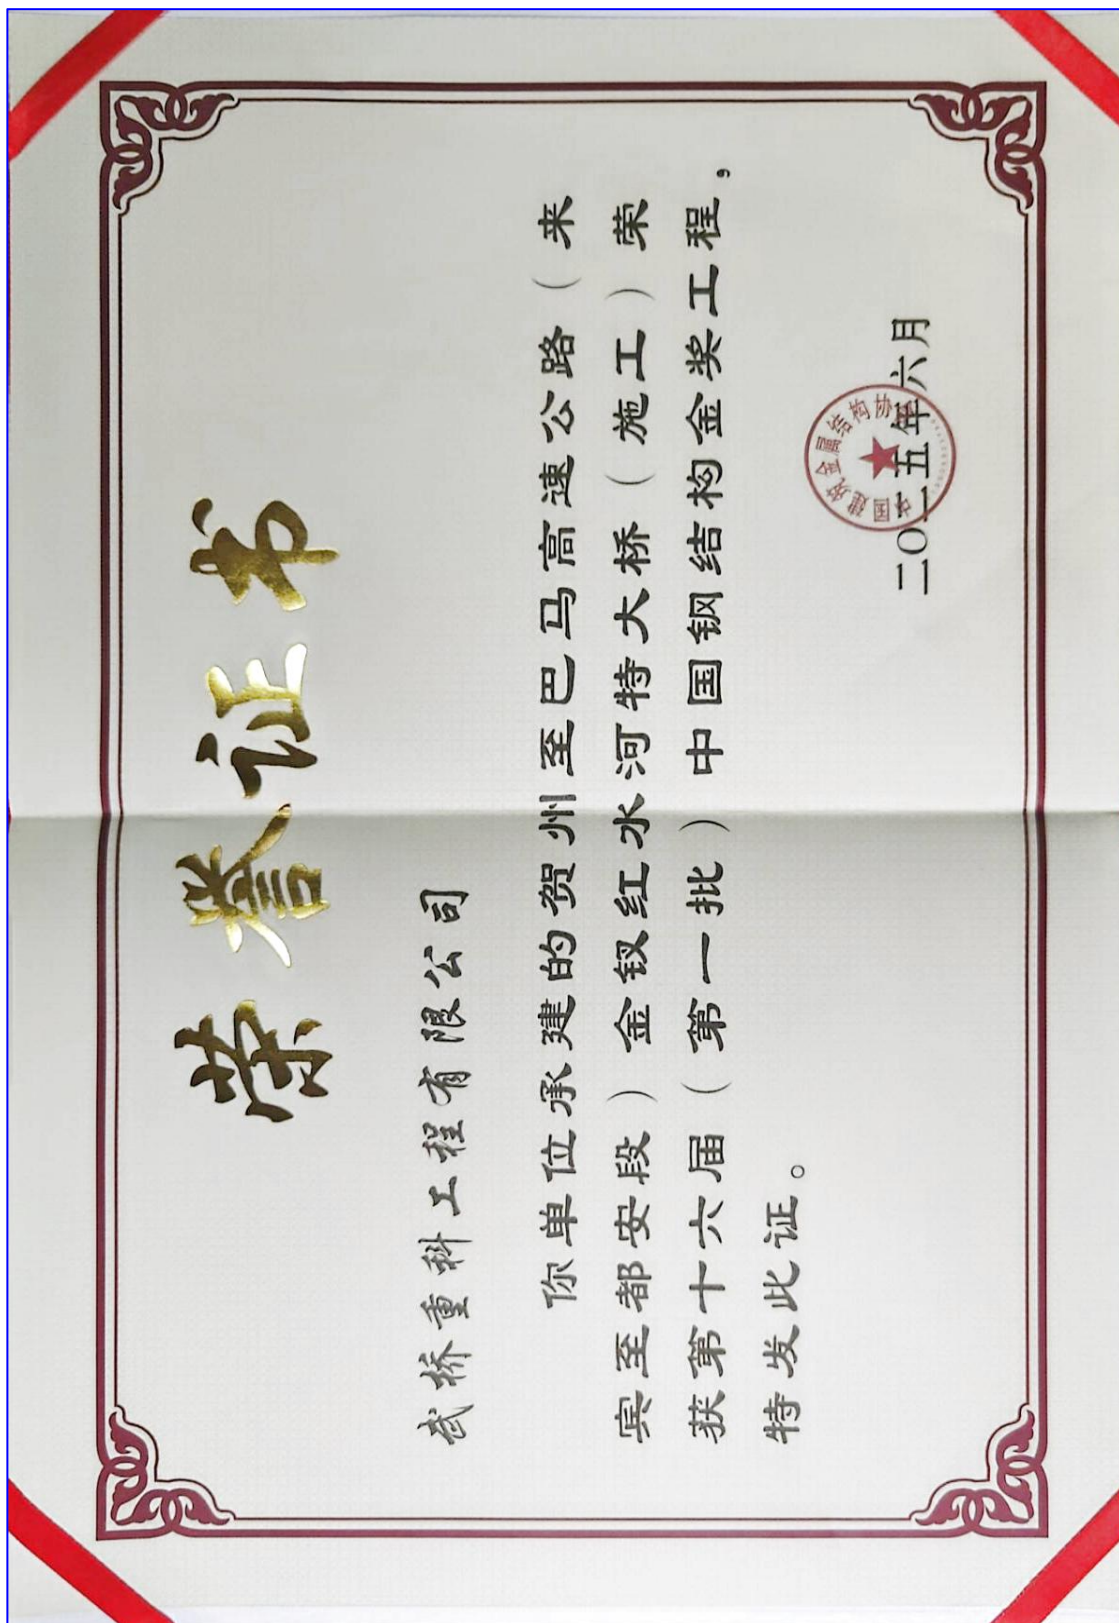 荣誉证书
武桥重科工程有限公司
你单位承建的贺州至巴马高速公路（来
宾至都安段）金钗红水河特大桥（施工）荣
获第十六届（第一批）中国钢结构金奖工程，
特发此证。
中国建筑金属结构协会
二〇二五年六月